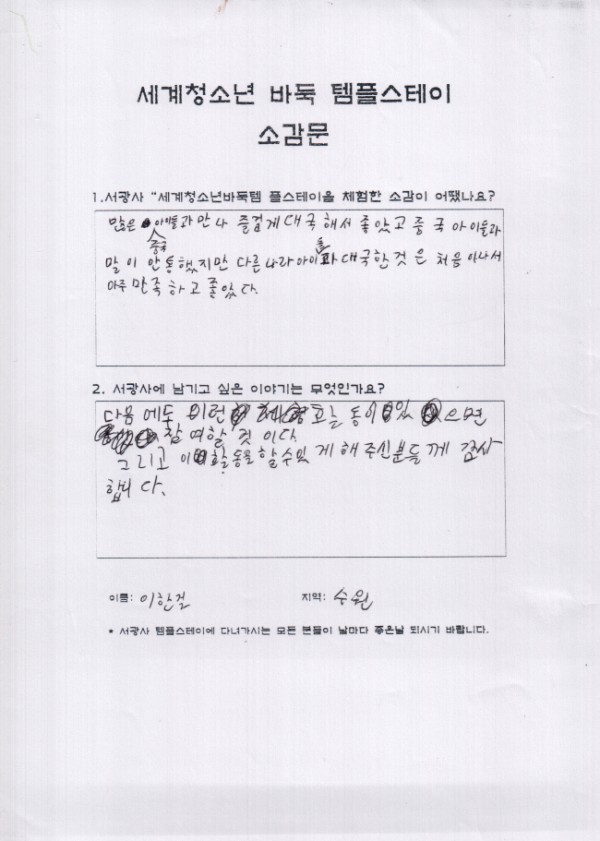 세계청소년 바둑 템플스테이
소감문
1.서광사 "세계청소년바둑템 플스테이을 체험한 소감이 어땠나요?
많은 중국 아이들과 만나 즐겁게 대국해서 좋았고 중국 아이들과
말이 안통했지만 다른나라 아이들과 대국한것은 처음이나서
아주 만족하고 좋았다.
2. 서광사에 남기고 싶은 이야기는 무엇인가요?
다음에도 이런 활동이 있으면
참여할 것이다.
그리고 이 활동을 할수있게 해주신분들께 감사
합니다.
이름: 이한결 지역: 수원
* 서광사 템플스테이에 다녀가시는 모든 분들이 날마다 좋은날 되시기 바랍니다.